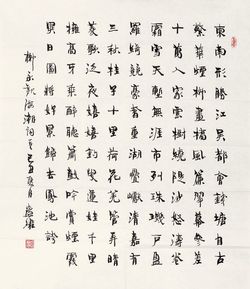 東南形勝江吳都會錢塘自古
繁華煙柳畫橋風簾翠幕參差
十萬人家雲樹繞堤沙怒濤卷
霜雪天塹無涯市列珠璣戶盈
羅綺競豪奢重湖疊巘清嘉有
三秋桂子十里荷花羌管弄晴
菱歌泛夜嬉嬉釣叟蓮娃千騎
擁高牙乘醉聽簫鼓吟賞煙霞
異日圖將好景歸去鳳池誇
柳永望海潮詞